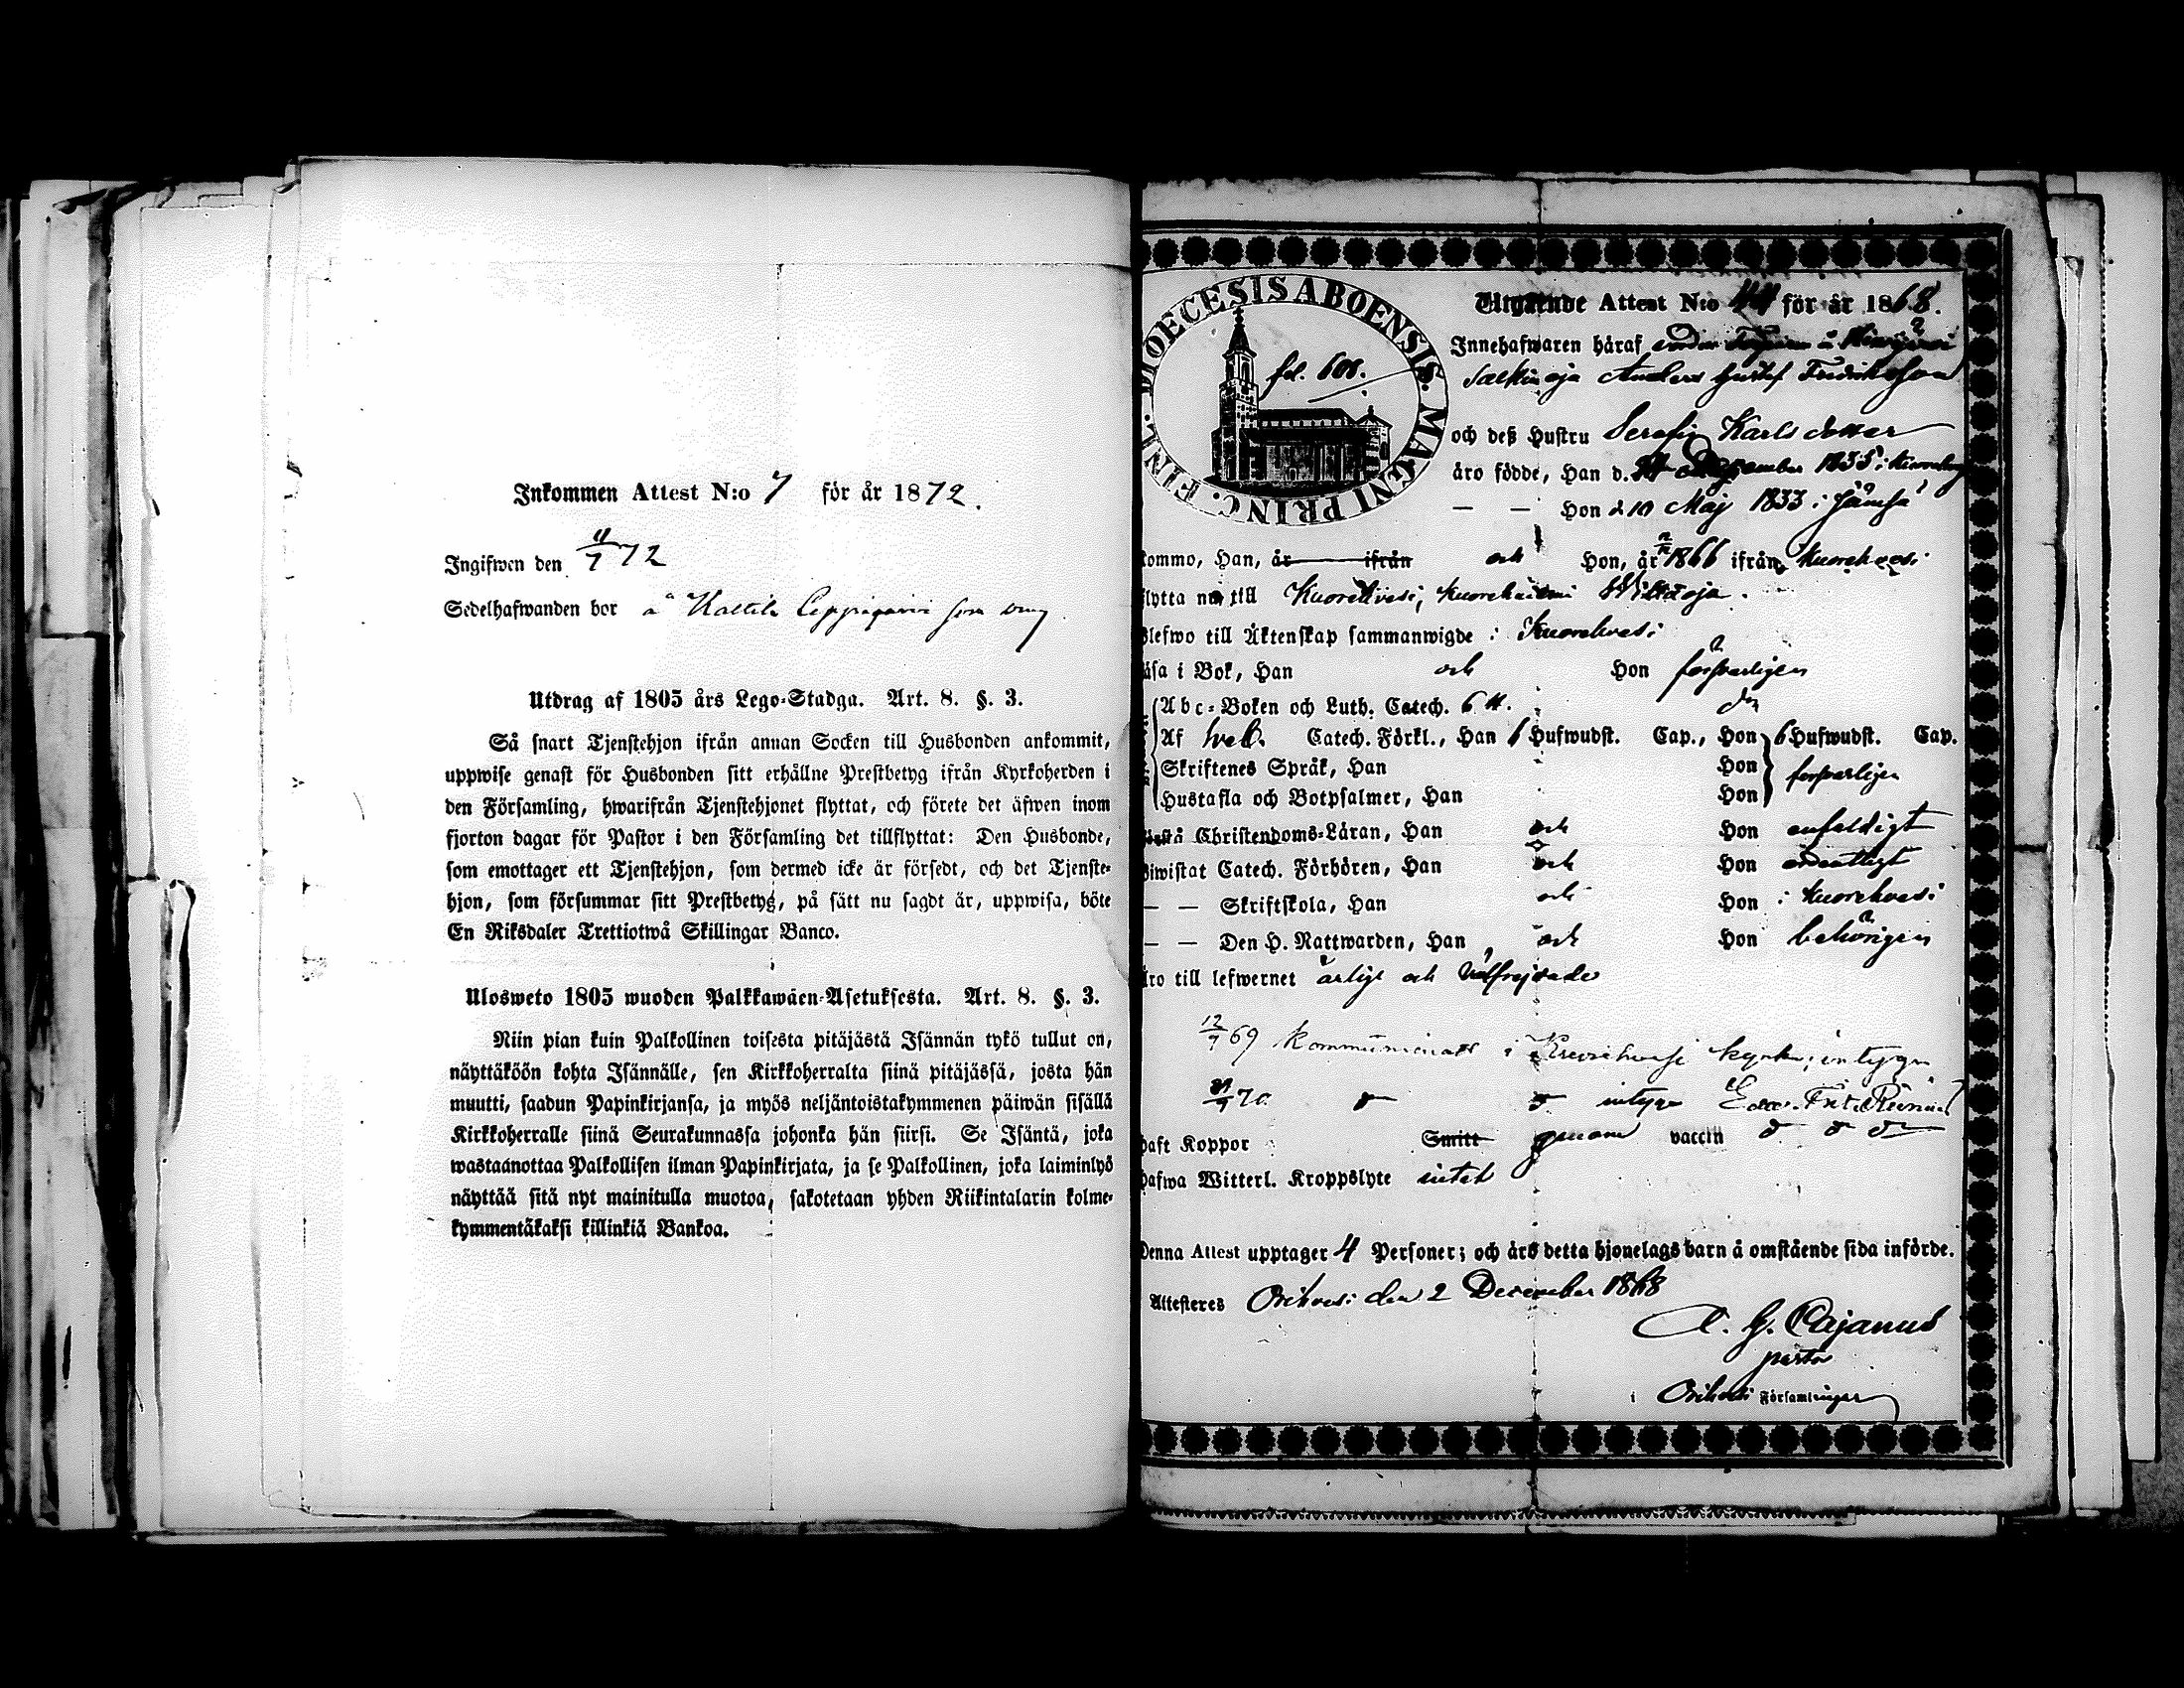 Inkommen Attest N:o 7 för år 1872.
Ingifwen den 11/7 72
Sedelhafwanden bor å Kaltila
Utdrag af 1805 års Lego-Stadga. Art. 8. §. 3.
Så snart Tjenstehjon ifrån annan Socken till Husbonden ankommit,
uppwise genast för Husbonden sitt erhållne Prestbetyg ifrån Kyrkoherden i
den Församling, hwarifrån Tjenstehjonet flyttat, och förete det äfwen inom
fjorton dagar för Pastor i den Församling det tillflyttat: Den Husbonde,
som emottager ett Tjenstehjon, som dermed icke är försedt, och det Tjenste-
hjon, som försummar sitt Prestbetyg, på sätt nu sagdt är, uppwisa, böte
En Riksdaler Trettiotwå Skillingar Banco.
Ulosweto 1805 wuoden Palkkawäen-Asetuksesta. Art. 8. §. 3.
Niin pian kuin Palkollinen toisesta pitäjästä Isännän tykö tullut on,
näyttäköön kohta Isännälle, sen Kirkkoherralta siinä pitäjässä, josta hän
muutti, saadun Papinkirjansa, ja myös neljäntoistakymmenen päiwän sisällä
Kirkkoherralle siinä Seurakunnassa johonka hän siirsi. Se Isäntä, joka
wastaanottaa Palkollisen ilman Papinkirjata, ja se Palkollinen, joka laiminlyö
näyttää sitä nyt mainitulla muotoa, sakotetaan yhden Riikintalarin kolme-
kymmentäkaksi killinkiä Bankoa.
FINL. DIOECESIS ABOENSIS. MAGNI PRINC.
fol. 608.
Utgående Attest N:o 44 för år 1868.
Innehafwaren häraf
Anders Gustaf Fredriksson
och deß Hustru Serafia Karlsdotter
äro födde, Han d. 1835 i
— — Hon d 10 Maj 1833 i Jämsä
kommo, Han, år ifrån och Hon, år 1866 ifrån Kuorehvesi
flytta nu till Kuorehvesi,
Blefwo till Äktenskap sammanwigde i Kuorehvesi
läsa i Bok, Han och Hon försvarligen
Abc-Boken och Luth. Catech. 6 H.
Af Catech. Förkl., Han 6 Hufwudst. Cap., Hon 6 Hufwudst. Cap.
Skriftenes Språk, Han Hon försvarligen
Hustafla och Botpsalmer, Han Hon
Christendoms-Läran, Han och Hon enfaldigt
Biwistat Catech. Förhören, Han och Hon ordentligt
— — Skriftskola, Han och Hon i Kuorehvesi
— — Den H. Nattwarden, Han och Hon behörigen
äro till lefwernet ärligt och välfrejdade
12/7 69 kommunicat i Kuorehvesi kyrka; intygar
70 intygar
haft Koppor Smitt genom vaccin
hafwa Witterl. Kroppslyte intet
Denna Attest upptager 4 Personer; och äro detta hjonelags barn å omstående sida införde.
Attesteres Orihvesi den 2 December 1868
A. G. Cajanus
pastor
i Orihvesi Församlingar